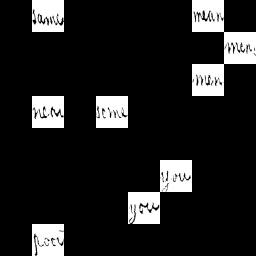 same mean
men,
men
near some
you
you
poor